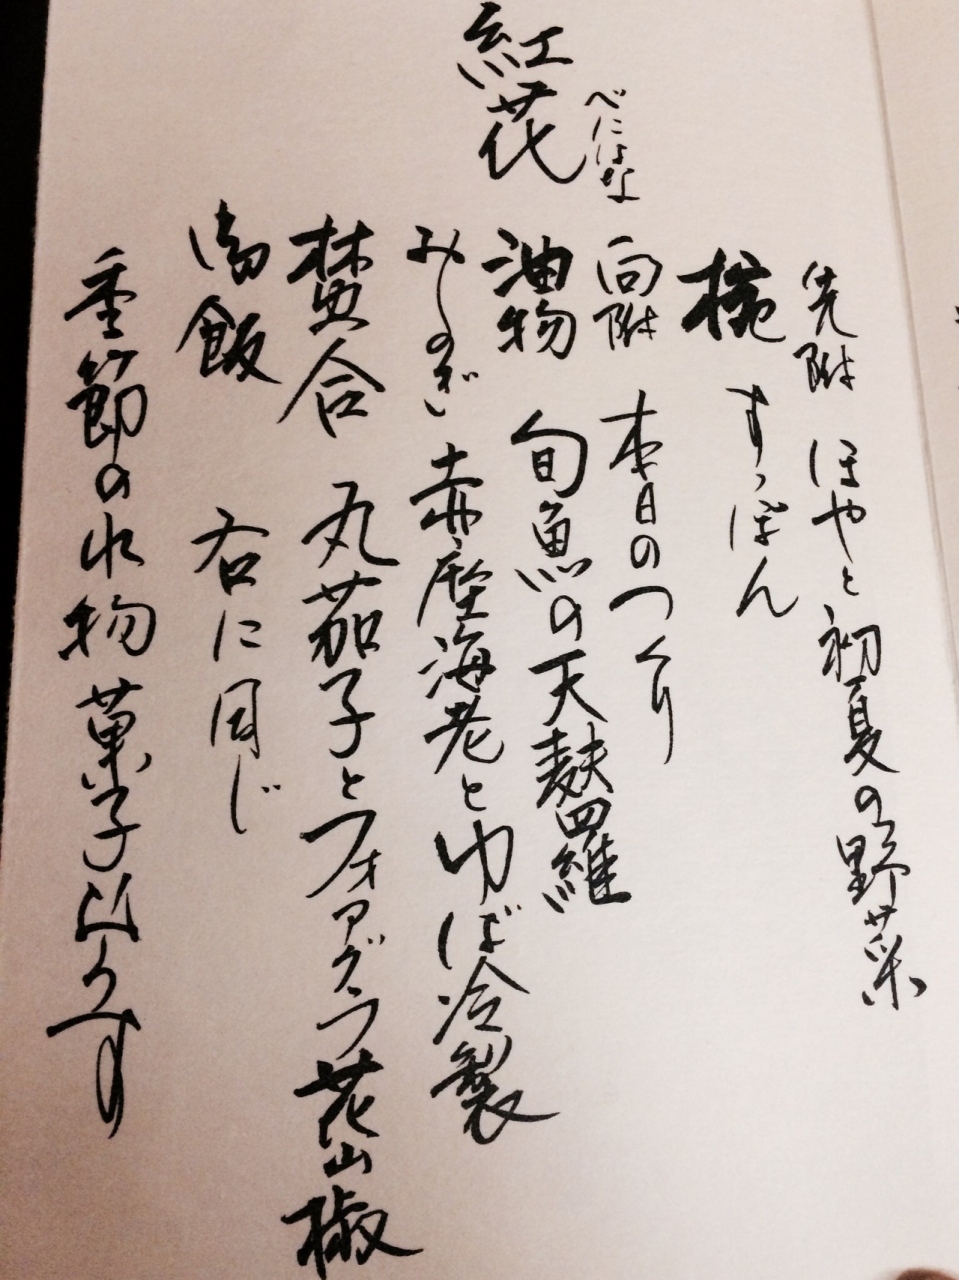 紅花
べにはな
先附 ほやと初夏の野菜
椀 すっぽん
向附 本日のつくり
油物 旬魚の天麩羅
おしのぎ 赤座海老とゆば冷製
焚合 丸茄子とフォアグラ花山椒
御飯 右に同じ
季節の水物 菓子 おうす